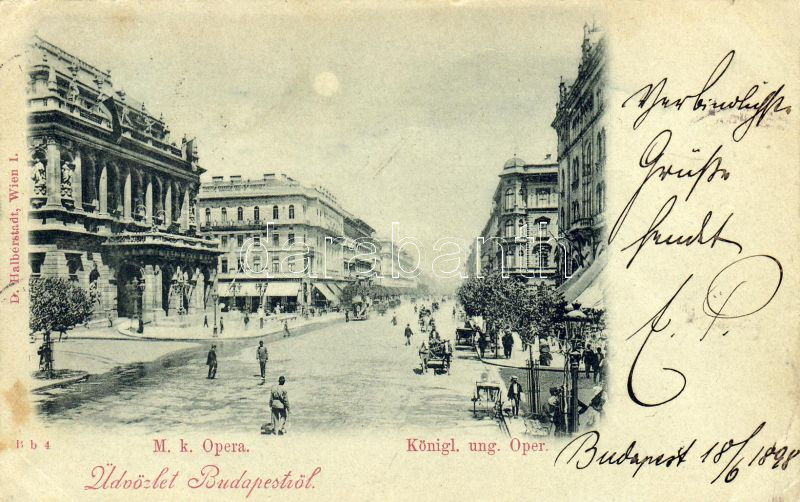 D. Halberstadt, Wien I.
Verbindlichste
Grüße
sendet
E. P.
darabanth
B b 4
M. k. Opera.
Königl. ung. Oper.
Üdvözlet Budapestről.
Budapest 18/6 1898